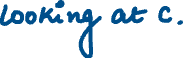 looking at c.